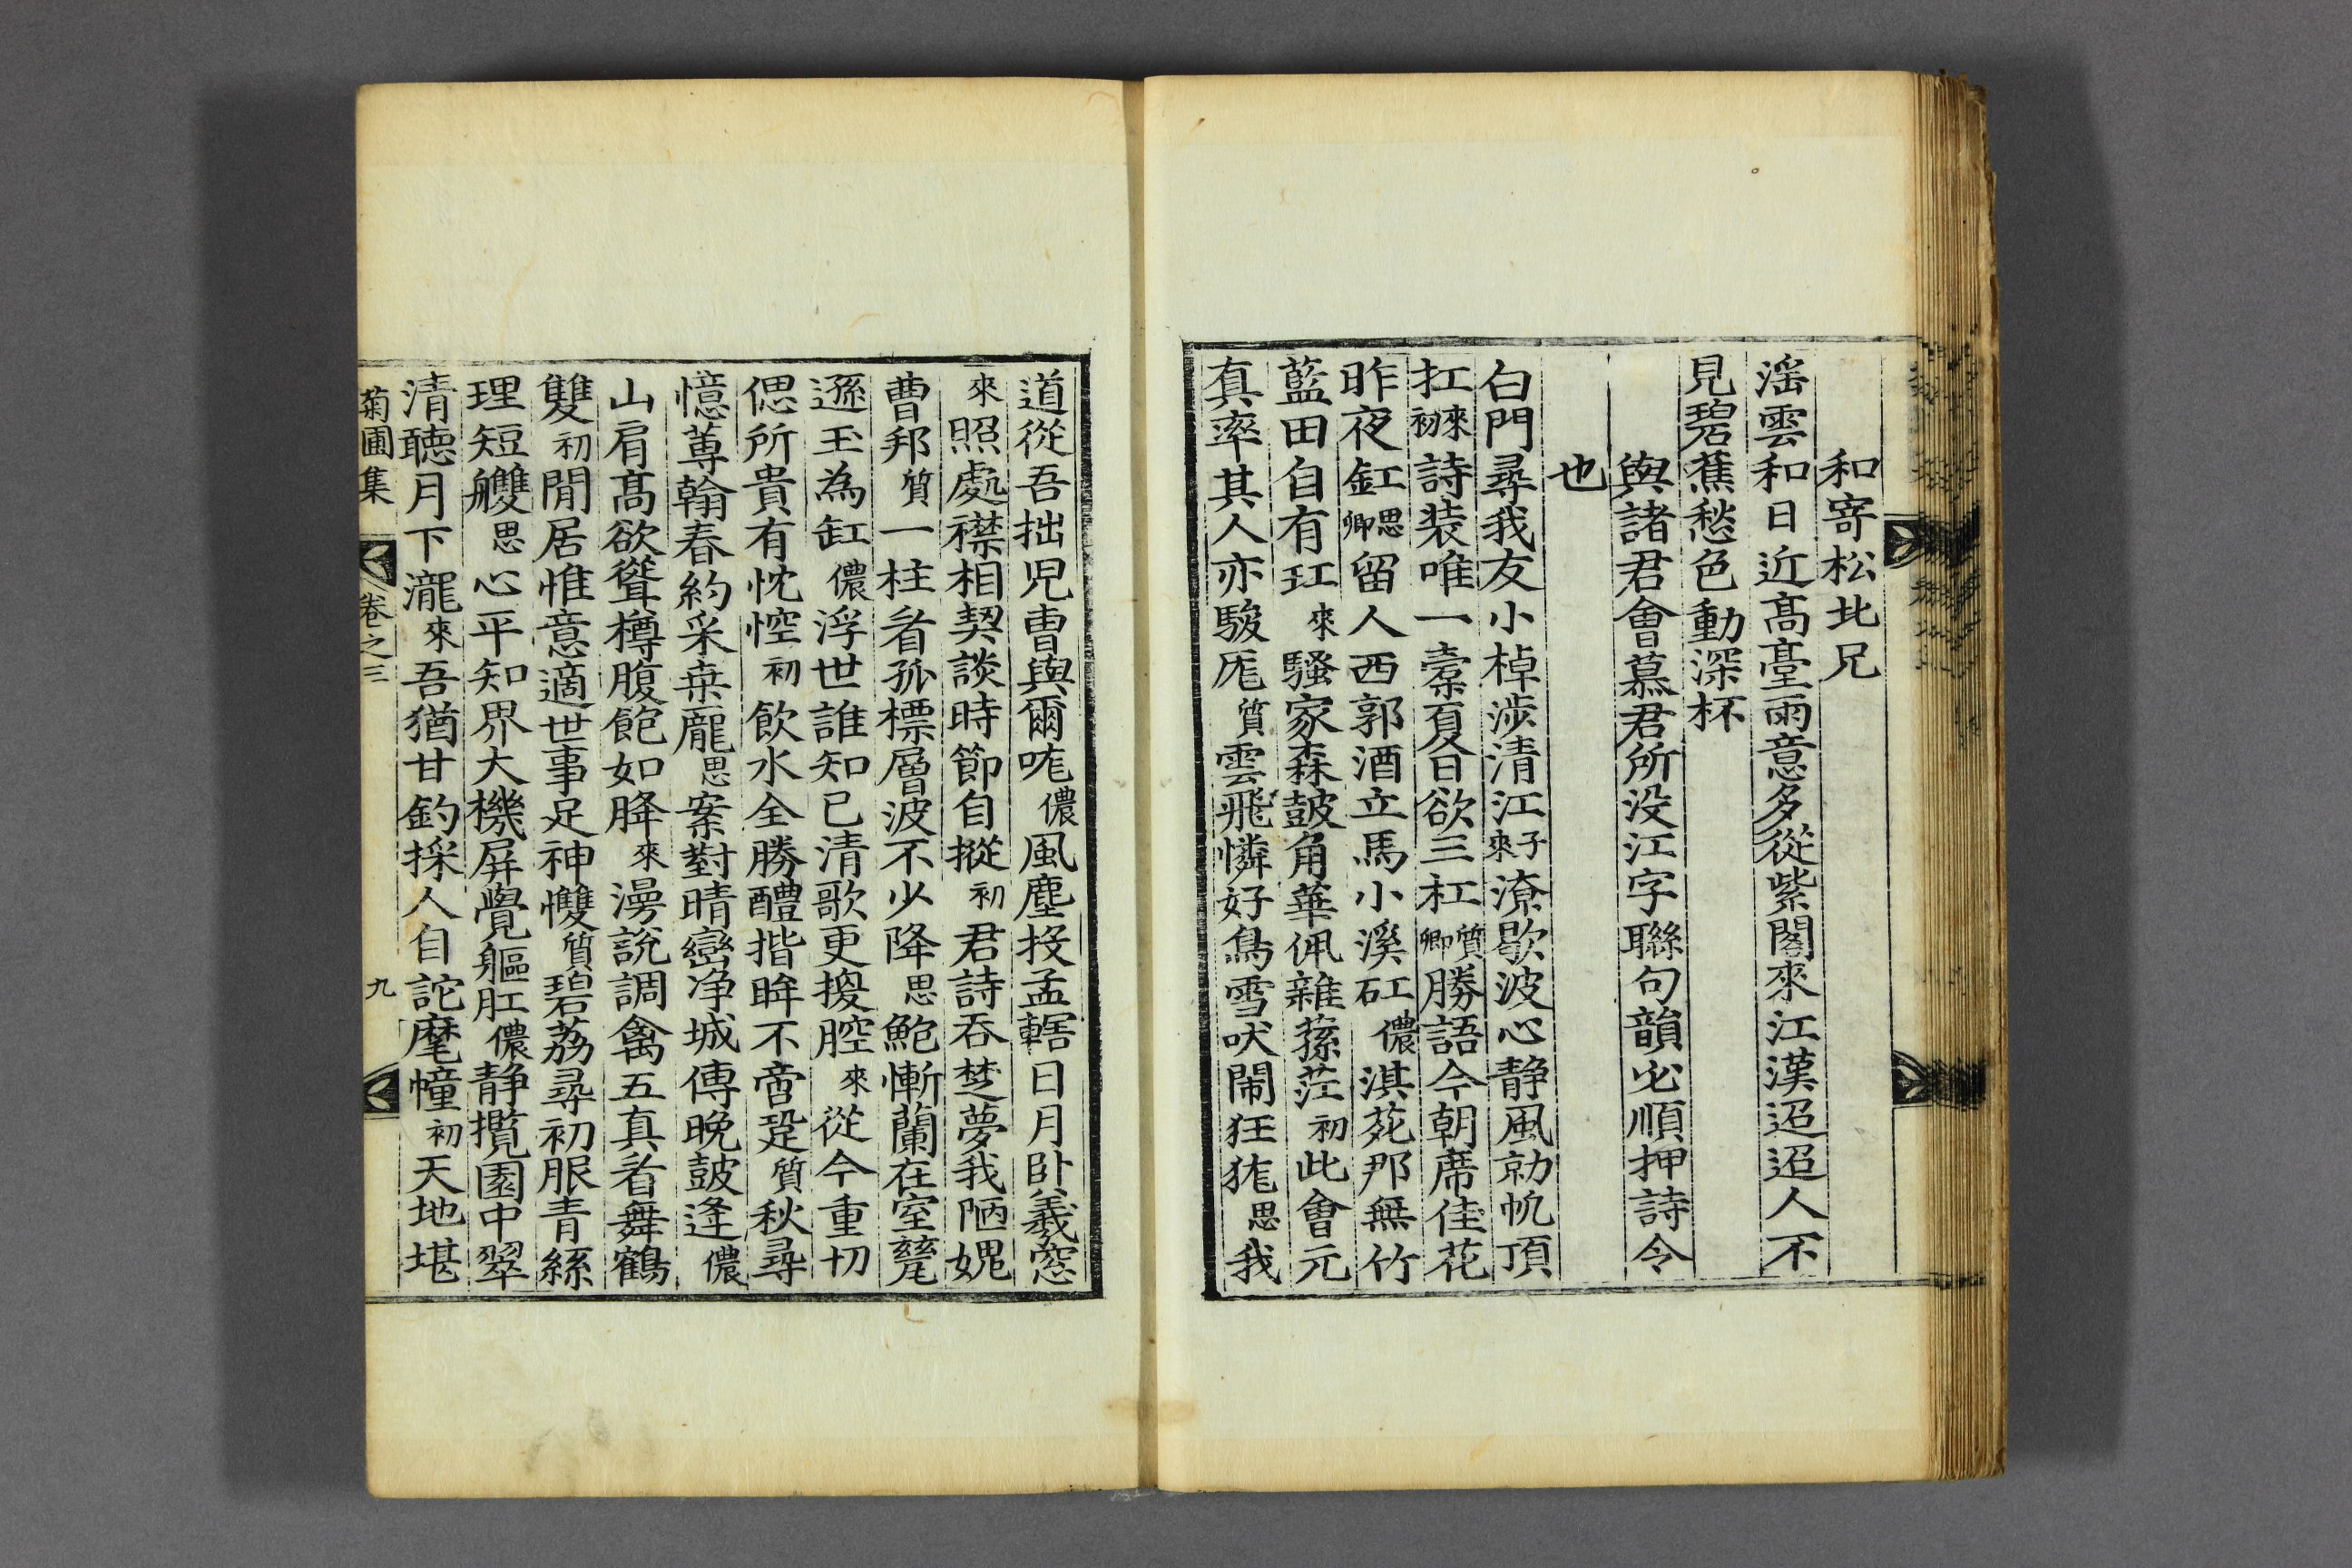 和寄松北兄
滛雲和日近髙臺雨意多從紫閣來江漢迢迢人不
見碧蕉愁色動深杯
與諸君會慕君所没江字聯句韻必順押詩令
也
白門尋我友小棹涉清江子來潦歇波心静風勍帆頂
扛來初詩装唯一橐夏日欲三杠質卿勝語今朝席佳花
昨夜釭思卿留人西郭酒立馬小溪矼儂淇菀那無竹
藍田自有玒來騷家森鼓角華佩雜蓀茳初此會元
真率其人亦駿厖質雲飛憐好鳥雪吠閙狂狵思我
道從吾拙児曺與爾哤儂風塵投孟轄日月卧羲窓
來照處襟相契談時節自摐初君詩吞楚夢我陋媲
曹邦質一柱看孤標層波不少降思鮑慚蘭在室甆
遜玉為缸儂浮世誰知已清歌更搜腔來從今重切
偲所貴有忱悾初飲水全勝醴揩眸不啻跫質秋尋
憶蓴翰春約采桒龐思案對晴巒净城傳晚鼓逄儂
山肩髙欲聳樽腹飽如胮來漫說調禽五真看舞鶴
雙初閒居惟意適世事足神㦼質碧荔尋初服青絲
理短艭思心平知界大機屏覺軀肛儂静攬園中翠
清聴月下瀧來吾猶甘釣採人自詑麾幢初天地堪
菊圃集 卷之三 九